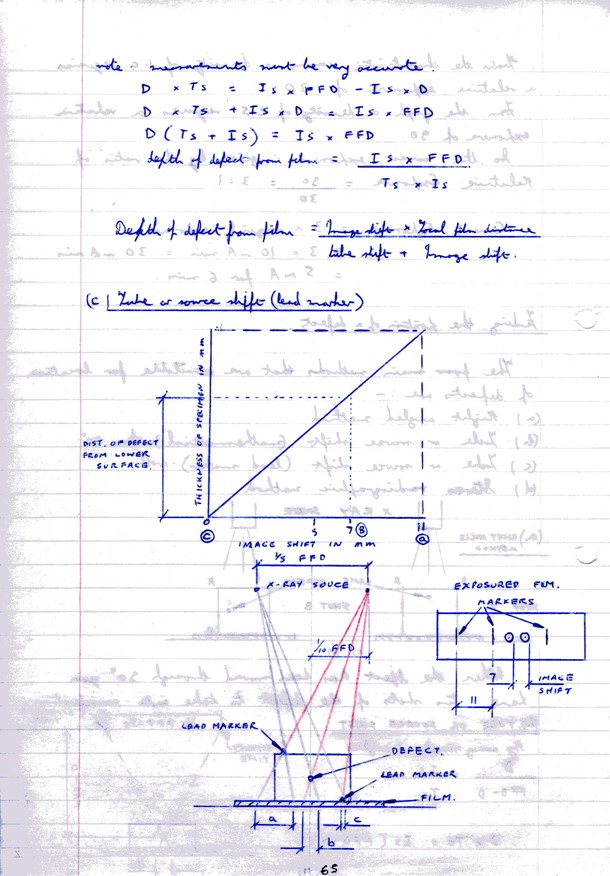 note. measurements must be very accurate.
D × Ts = Is × FFD - Is × D
D × Ts + Is × D = Is × FFD
D (Ts + Is) = Is × FFD
depth of defect from film = Is × FFD
Ts × Is
Depth of defect from film = Image shift × Focal film distance
tube shift + Image shift.
(c) Tube or source shift (lead marker)
THICKNESS OF SPECIMEN IN MM
DIST. OF DEFECT
FROM LOWER
SURFACE.
5 7 (B) 11
(C) (a)
IMAGE SHIFT IN MM
1/5 FFD
X-RAY SOUCE
1/10 FFD
EXPOSURED FILM.
MARKERS
7 IMAGE
SHIFT
11
LEAD MARKER
DEFECT.
LEAD MARKER
FILM.
a c
b
65